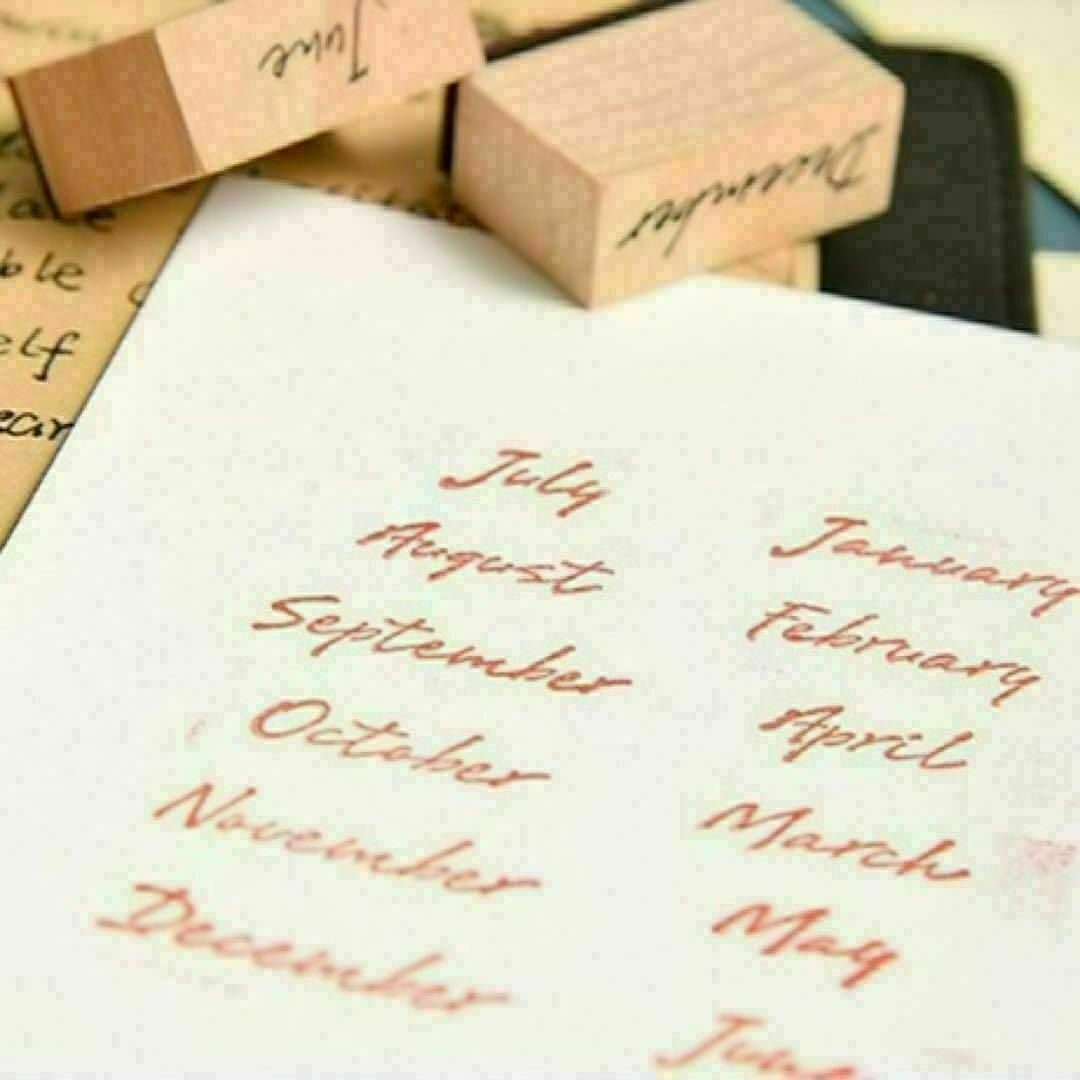 June
December
ble
elf
July
August
September
October
November
December
January
February
April
March
May
June